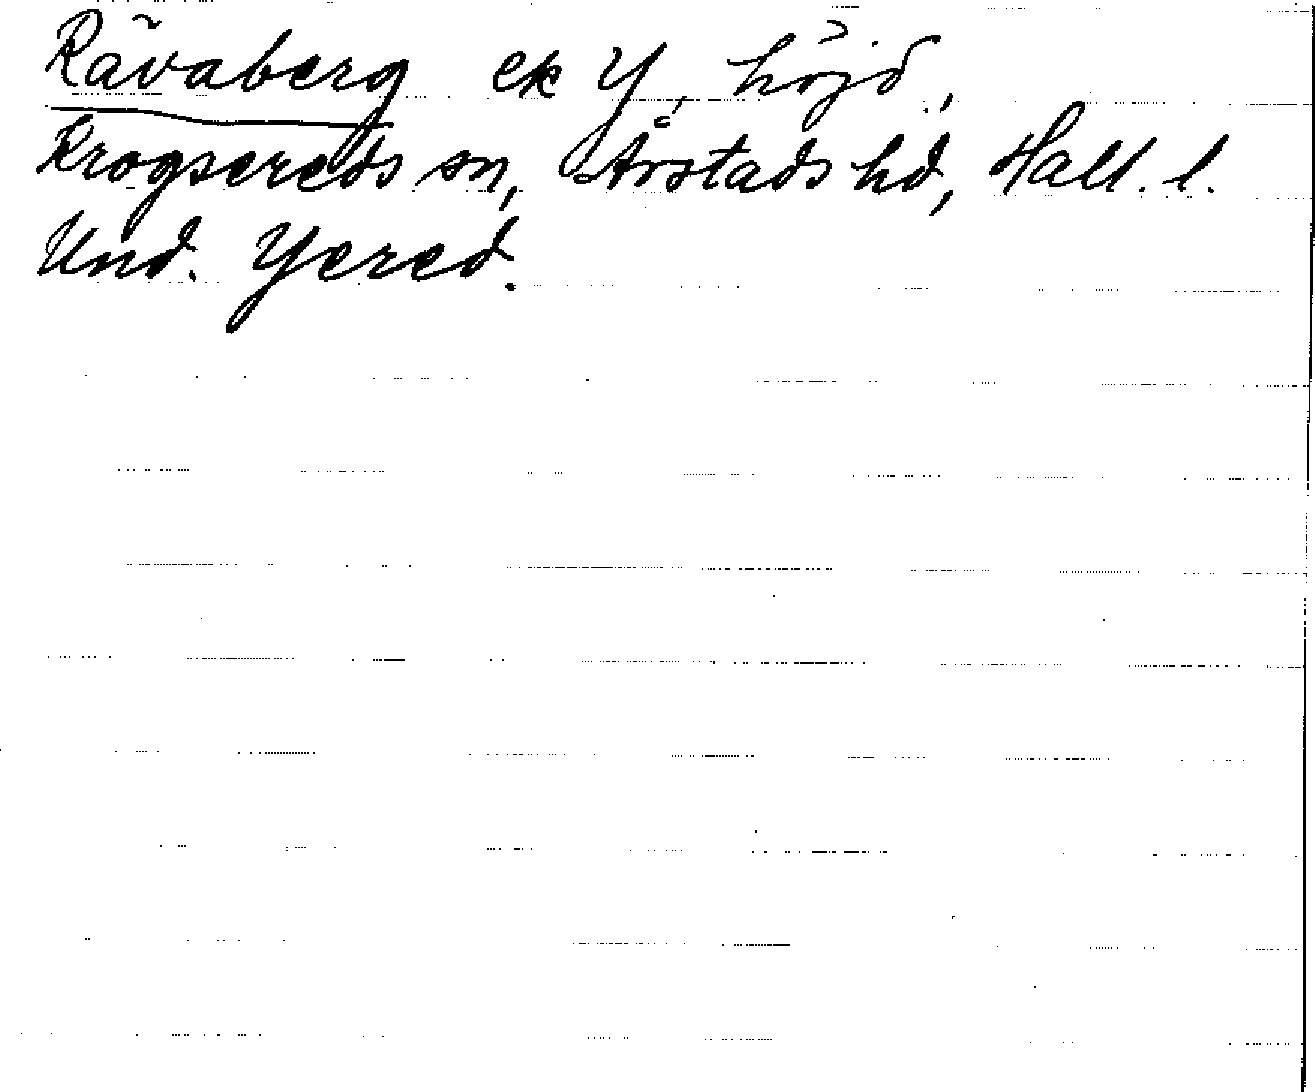 Rävaberg ek Y, höjd,
Krogsereds sn, Årstads hd, Hall. l.
Und. Yered.